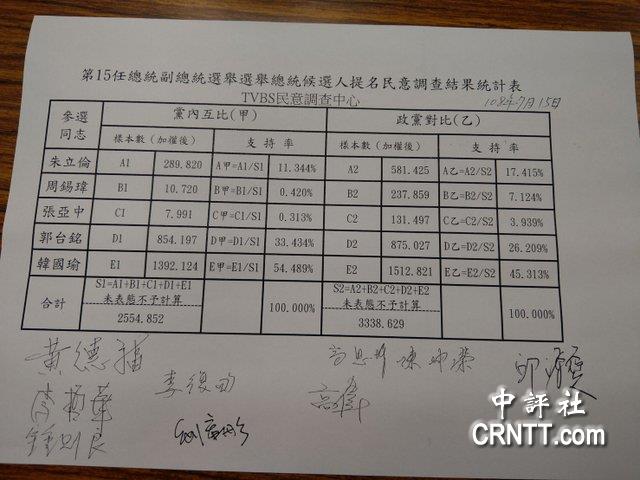 第15任總統副總統選舉選舉總統候選人提名民意調查結果統計表
TVBS民意調查中心 108年7月15日
參選同志 黨內互比(甲) 政黨對比(乙)
樣本數(加權後) 支持率 樣本數(加權後) 支持率
朱立倫 A1 289.820 A甲=A1/S1 11.344% A2 581.425 A乙=A2/S2 17.415%
周錫瑋 B1 10.720 B甲=B1/S1 0.420% B2 237.859 B乙=B2/S2 7.124%
張亞中 C1 7.991 C甲=C1/S1 0.313% C2 131.497 C乙=C2/S2 3.939%
郭台銘 D1 854.197 D甲=D1/S1 33.434% D2 875.027 D乙=D2/S2 26.209%
韓國瑜 E1 1392.124 E甲=E1/S1 54.489% E2 1512.821 E乙=E2/S2 45.313%
合計 S1=A1+B1+C1+D1+E1 100.000% S2=A2+B2+C2+D2+E2 100.000%
未表態不予計算 未表態不予計算
2554.852 3338.629
黃德福
李哲華 李復甸
鍾則良
中評社
CRNTT.com